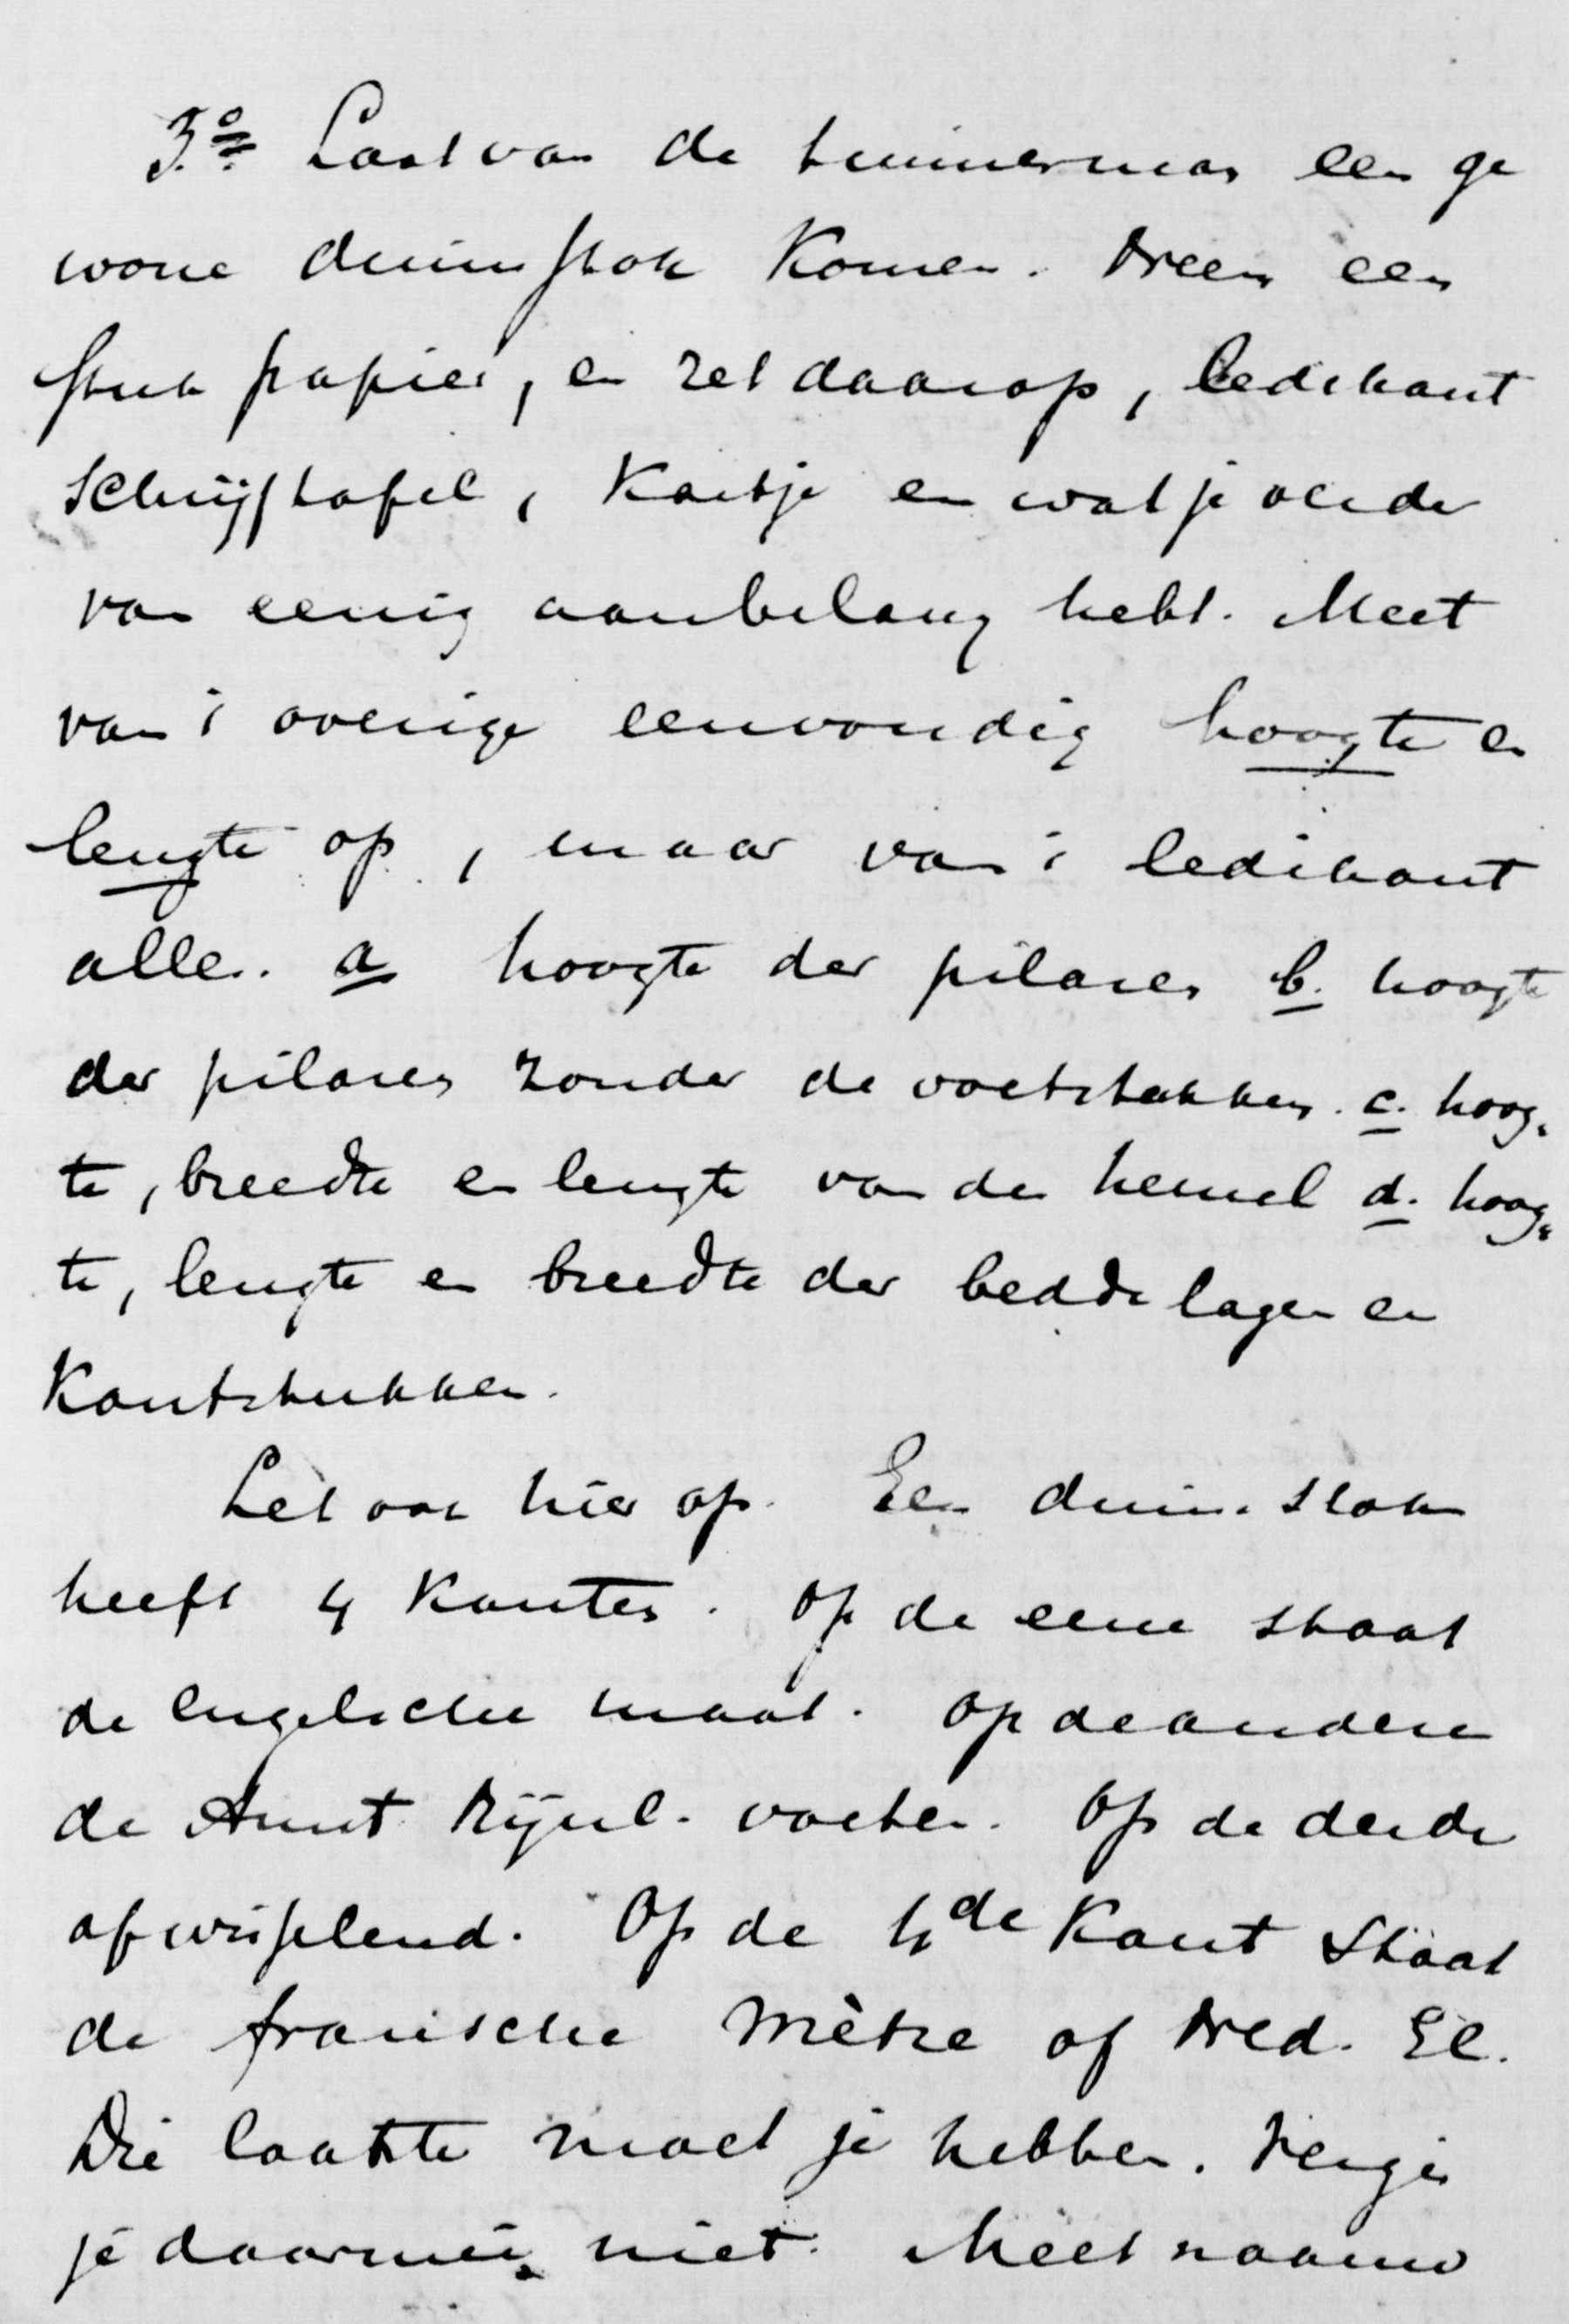 3.o Laat van de timmerman een ge
wone duimstok komen. Neem een
stuk papier, en zet daarop, ledekant
schrijftafel, kastje en wat je verder
van eenig aanbelang hebt. Meet
van 't overige eenvoudig hoogte en
lengte op, maar van 't ledikant
alles. a hoogte der pilaren b. hoogte
der pilaren zonder de voetstukken. c. hoog-
te, breedte en lengte van den hemel d. hoog-
te, lengte en breedte der beddelagen en
Kantstukken.
Let ook hier op. Een duimstok
heeft 4 kanten. Op de eene staat
de engelsche maat. Op de andere
de Amst. Rijnl. voeten. Op de derde
afwisselend. Op de 4de Kant staat
de fransche Mètre of Ned. El.
Die laatste moet je hebben. Vergis
je daarmeê niet. Meet naauw